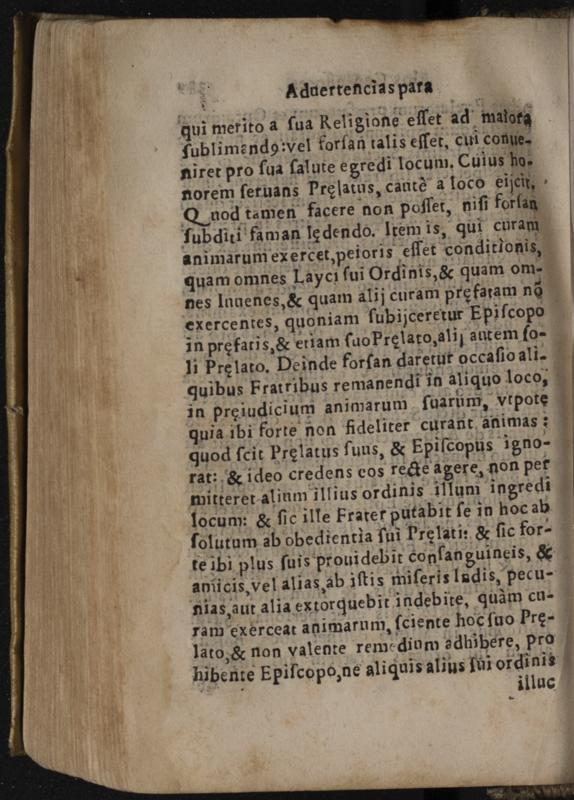 Aduertencias para
qui merito a ſua Religione eſſet ad maiora
ſublimandꝰ:vel forſan talis eſſet, cui conue-
niret pro ſua ſalute egredi locum. Cuius ho-
norem ſeruans Pręlatus, cautè a loco eijcit,
Quod tamen facere non poſſet, niſi forſan
ſubditi faman lędendo. Item is, qui curam
animarum exercet,peioris eſſet conditionis,
quam omnes Layci ſui Ordinis,& quam om-
nes Iuuenes,& quam alij curam pręfatam nō
exercentes, quoniam ſubijceretur Epiſcopo
in pręfatis,& etiam ſuo Pręlato,alij autem ſo-
li Pręlato. Deinde forſan daretur occaſio ali-
quibus Fratribus remanendi in aliquo loco,
in pręiudicium animarum ſuarum, vtpote
quia ibi forte non fideliter curant animas :
quod ſcit Pręlatus ſuus, & Epiſcopus igno-
rat: & ideo credens eos recte agere, non per
mitteret alium illius ordinis illum ingredi
locum: & ſic ille Frater putabit ſe in hoc ab
ſolutum ab obedientia ſui Pręlati: & ſic for-
te ibi plus ſuis prouidebit conſanguineis, &
amicis,vel alias,ab iſtis miſeris Indis, pecu-
nias,aut alia extorquebit indebite, quàm cu-
ram exerceat animarum, ſciente hoc ſuo Prę-
lato,& non valente remedium adhibere, pro
hibente Epiſcopo,ne aliquis alius ſui ordinis
illuc